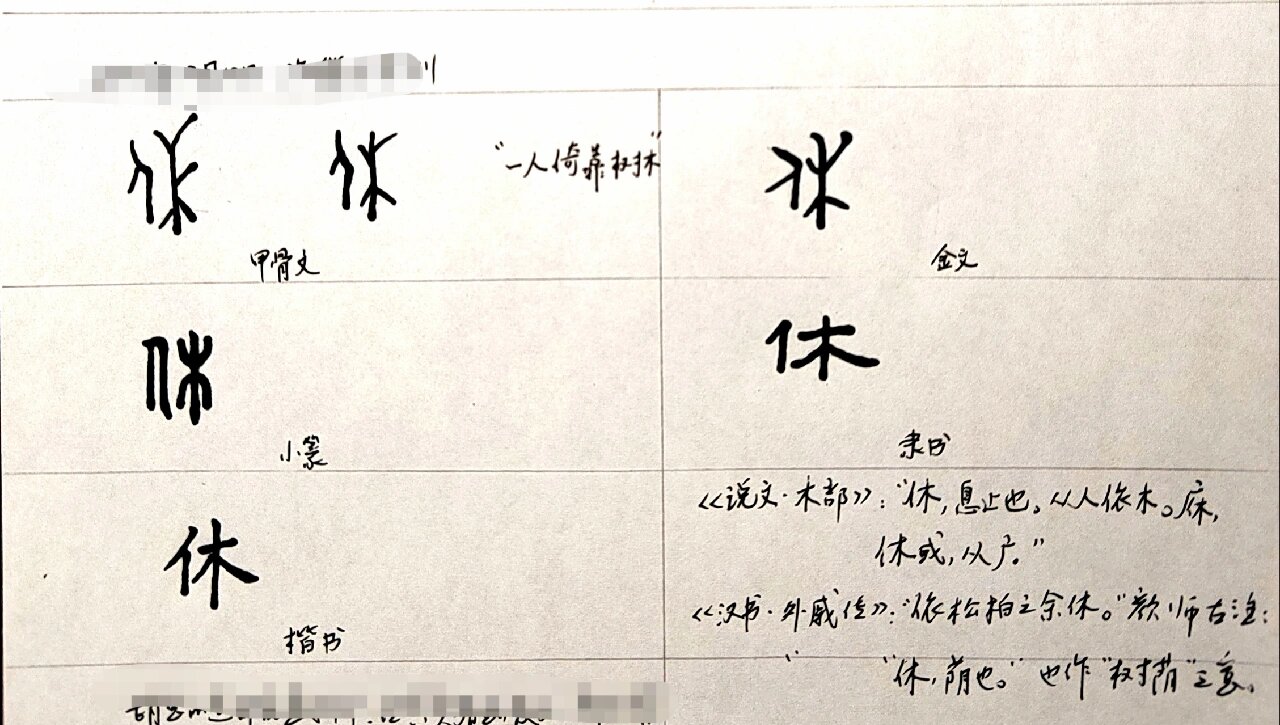 休 休 "一人倚靠树林" 休
甲骨文 金文
休 休
小篆 隶书
休
楷书
《说文·木部》:"休,息止也。从人依木。庥,
休或,从广。"
《汉书·外戚传》:"依松柏之余休。"颜师古注:
"休,荫也。"也作"树荫"之意。